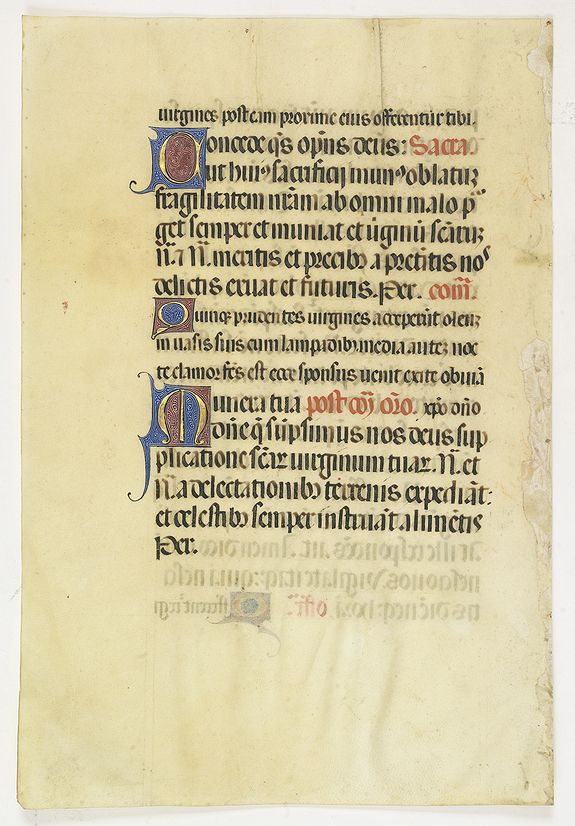 uirgines post eam proxime eius offerentur tibi.
Concede q̄s op̄ns deus: Sacra.
ut huiꝰ sacrificij munꝰ oblatuʒ
fragilitatem nr̄am ab omni malo p
get semper et muniat et uirginū sc̄aruʒ
N̄. ⁊ N̄. meritis et precibꝫ a pretitis nos
delictis exuat et futuris. Per. com̄.
Quinqꝫ prudentes uirgines acceperūt oleuʒ
in uasis suis cum lampadibꝫ media auteʒ noc
te clamor fc̄s est ecce sponsus uenit exite obuiā
Munera tua post cōȳ or̄o. xp̄o dn̄o
dn̄e q̄ sūpsimus nos deus sup
plicatione sc̄aꝝ uirginum tuaꝝ. N̄. et
N̄. a delectationibꝫ terrenis expediāt:
et celestibꝫ semper instruāt alimētis
Per.